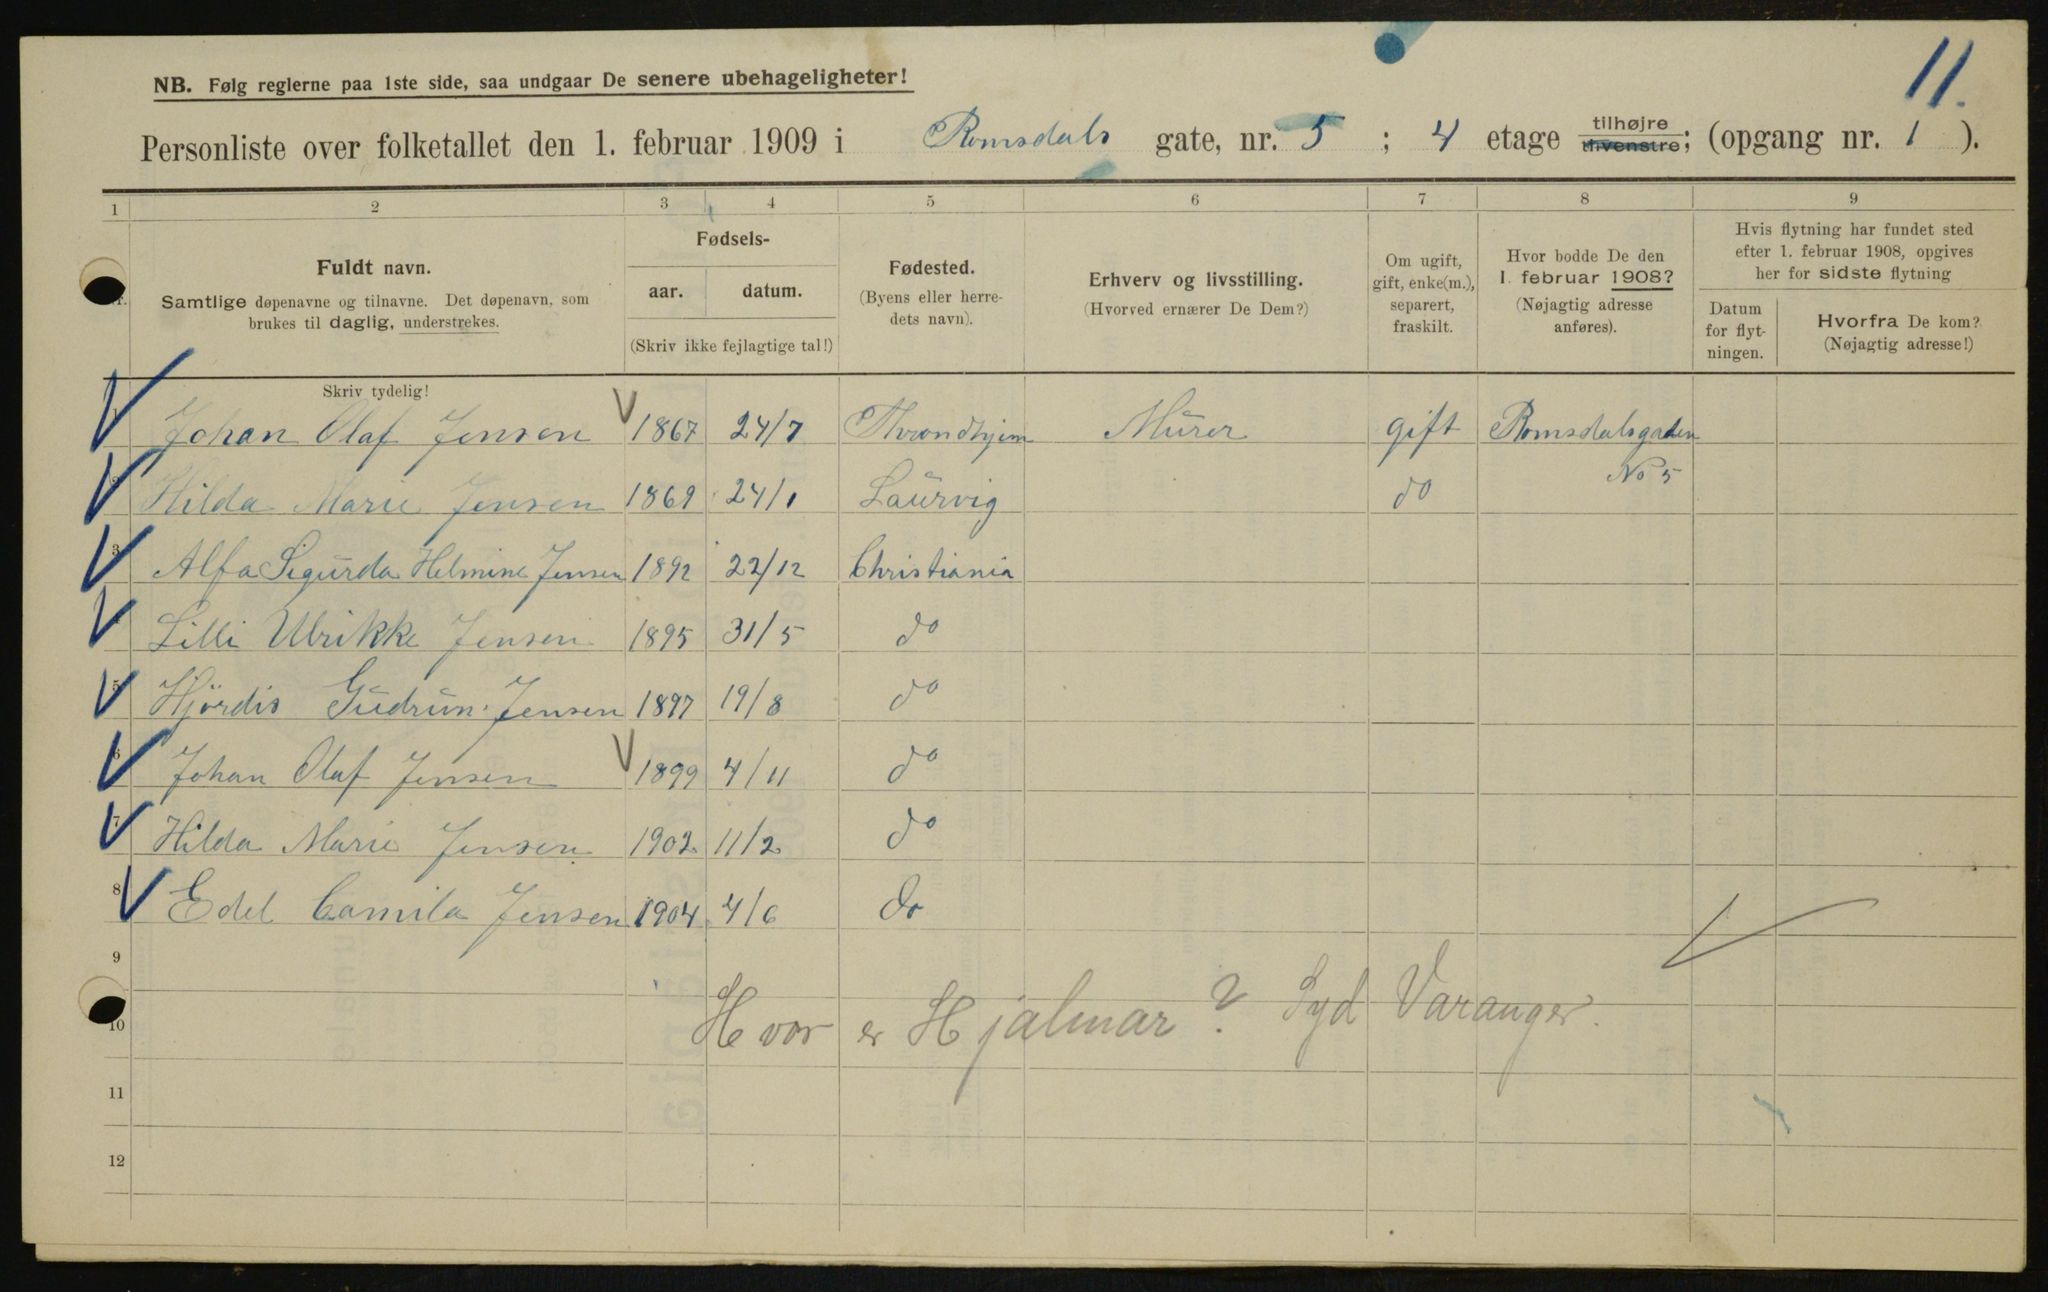 11.
NB. Følg reglerne paa 1ste side, saa undgaar De senere ubehageligheter!
Personliste over folketallet den 1. februar 1909 i Romsdals gate, nr. 5 ; 4 etage tilhøjre tilvenstre; (opgang nr. 1 ).
1 2 3 4 5 6 7 8 9
Nr.
Fuldt navn.
Samtlige døpenavne og tilnavne. Det døpenavn, som
brukes til daglig, understrekes.
Skriv tydelig!
Fødsels-
aar. datum.
(Skriv ikke fejlagtige tal!)
Fødested.
(Byens eller herre-
dets navn).
Erhverv og livsstilling.
(Hvorved ernærer De Dem?)
Om ugift,
gift, enke(m.),
separert,
fraskilt.
Hvor bodde De den
1. februar 1908?
(Nøjagtig adresse
anføres).
Hvis flytning har fundet sted
efter 1. februar 1908, opgives
her for sidste flytning
Datum
for flyt-
ningen.
Hvorfra De kom?
(Nøjagtig adresse!)
1 Johan Olaf Jensen 1867 24/7 Throndhjem Murer gift Romsdalsgaden
No 5
2 Hilda Marie Jensen 1869 24/1 Laurvig do
3 Alfa Sigurda Helmine Jensen 1892 22/12 Christiania
4 Lilli Ulrikke Jensen 1895 31/5 do
5 Hjördis Gudrun Jensen 1897 19/8 do
6 Johan Olaf Jensen 1899 4/11 do
7 Hilda Marie Jensen 1902 11/2 do
8 Edel Camila Jensen 1904 4/6 do
9
Hvor er Hjalmar? Syd Varanger.
10
11
12